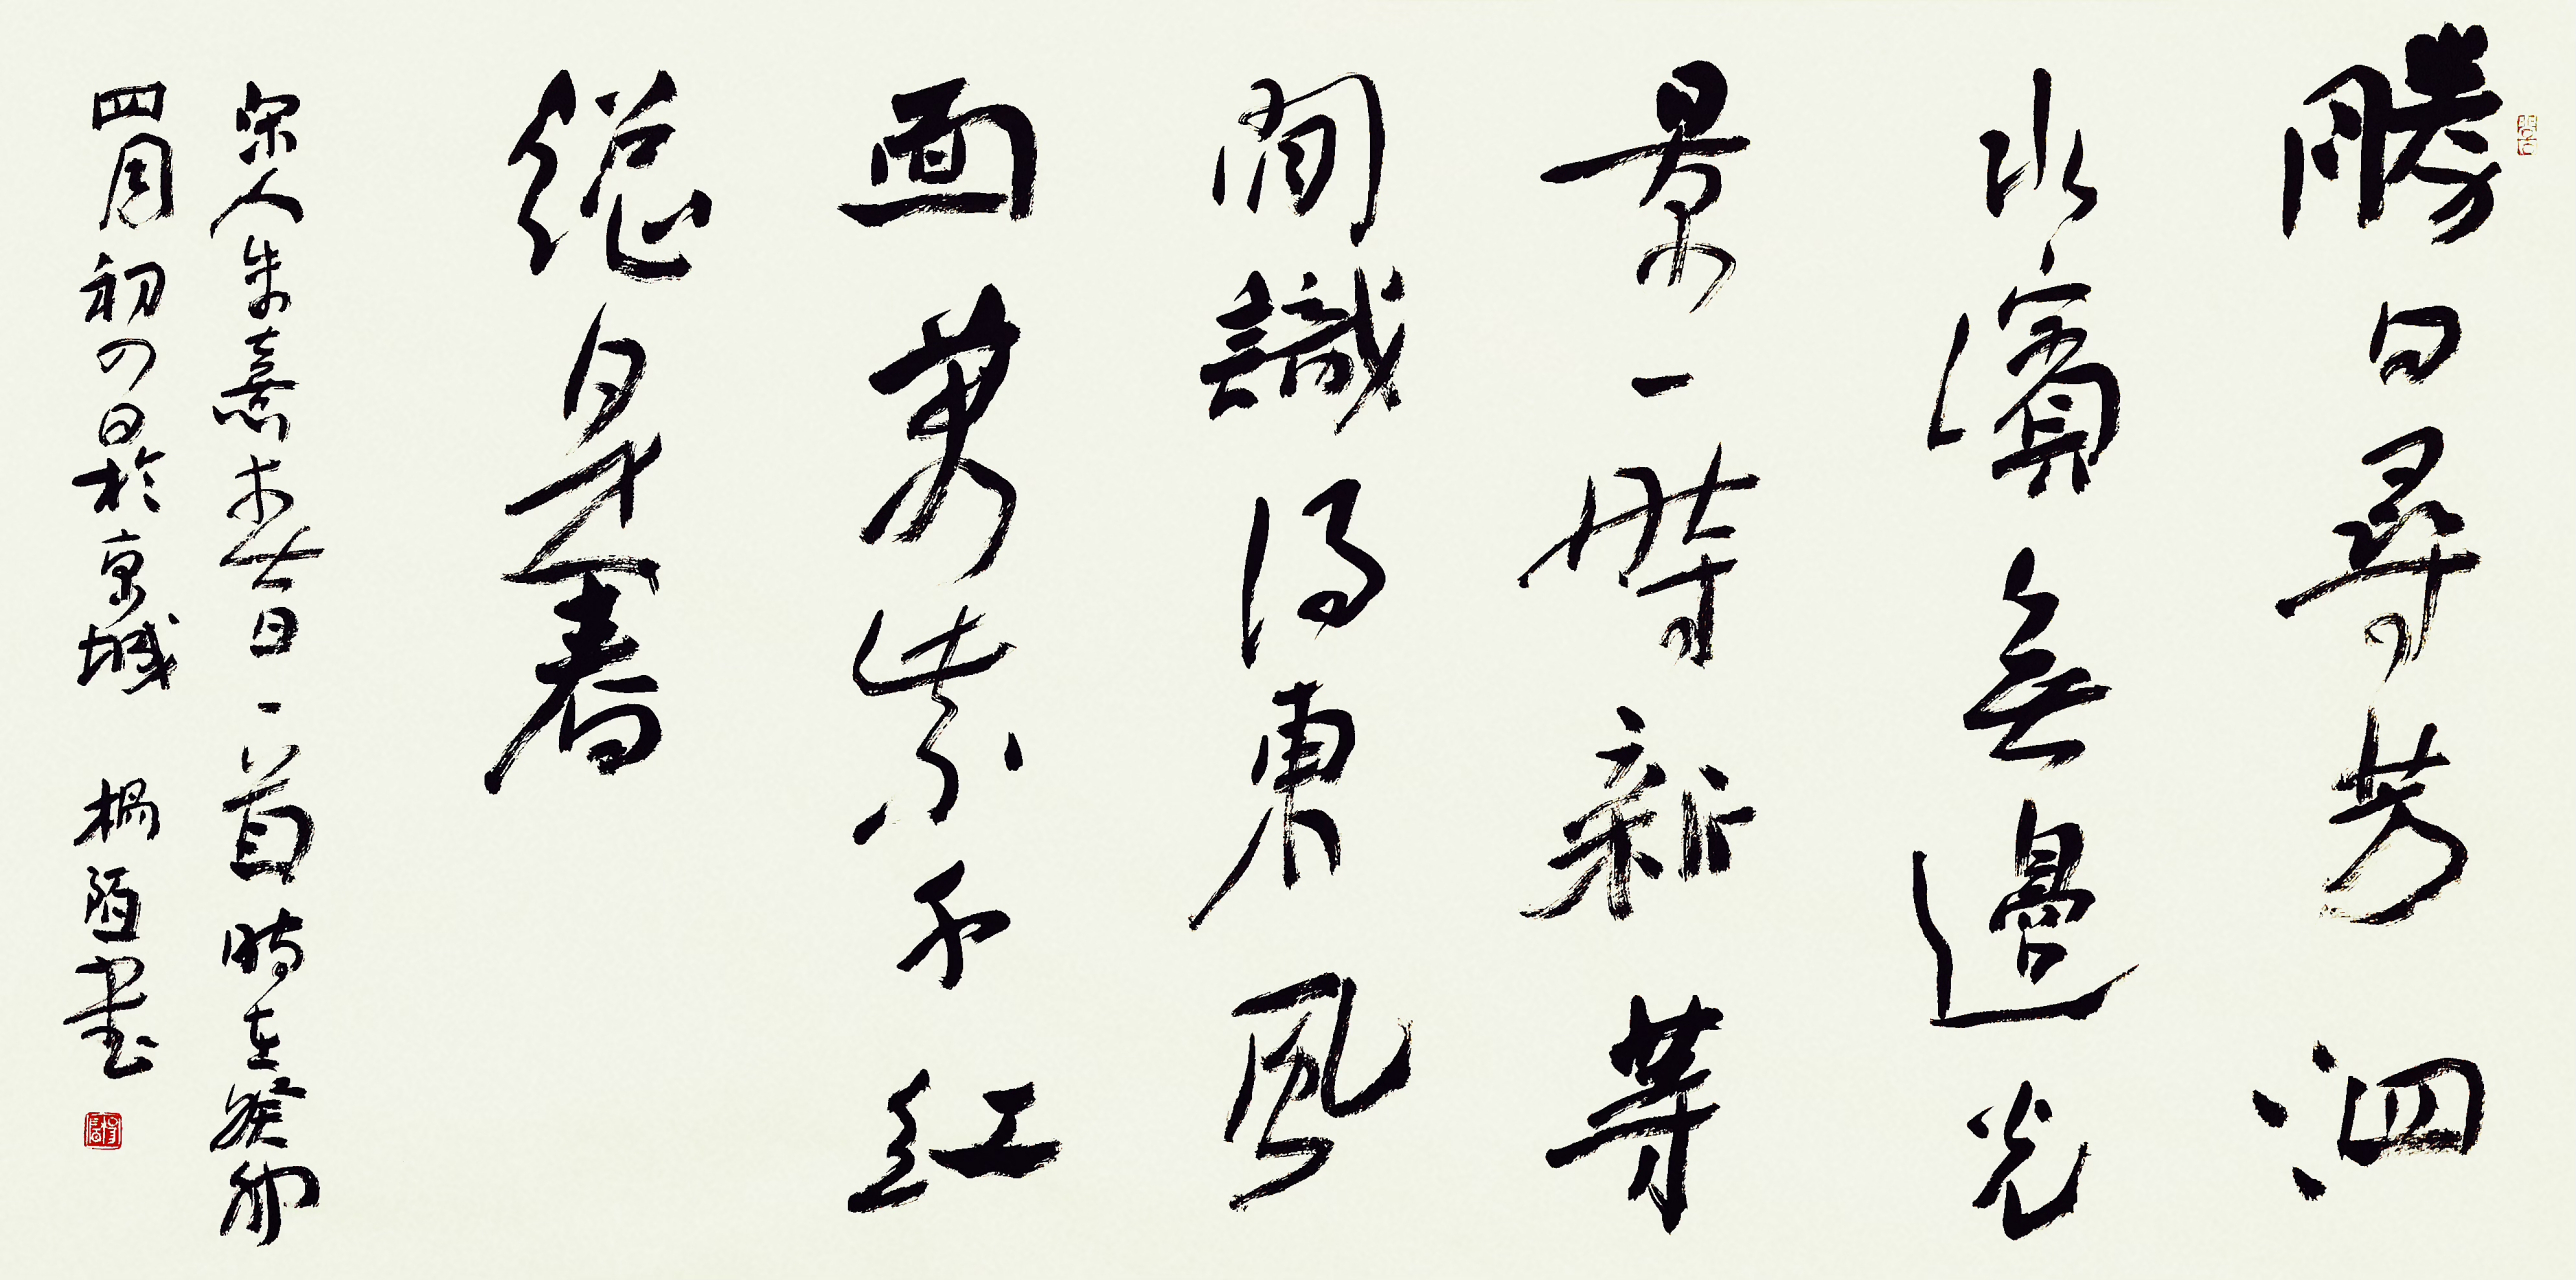 勝日尋芳泗
水濱無邊光
景一時新等
閒識得東風
面萬紫千紅
總是春
宋人朱熹春日一首時在癸卯
四月初四日於京城 書